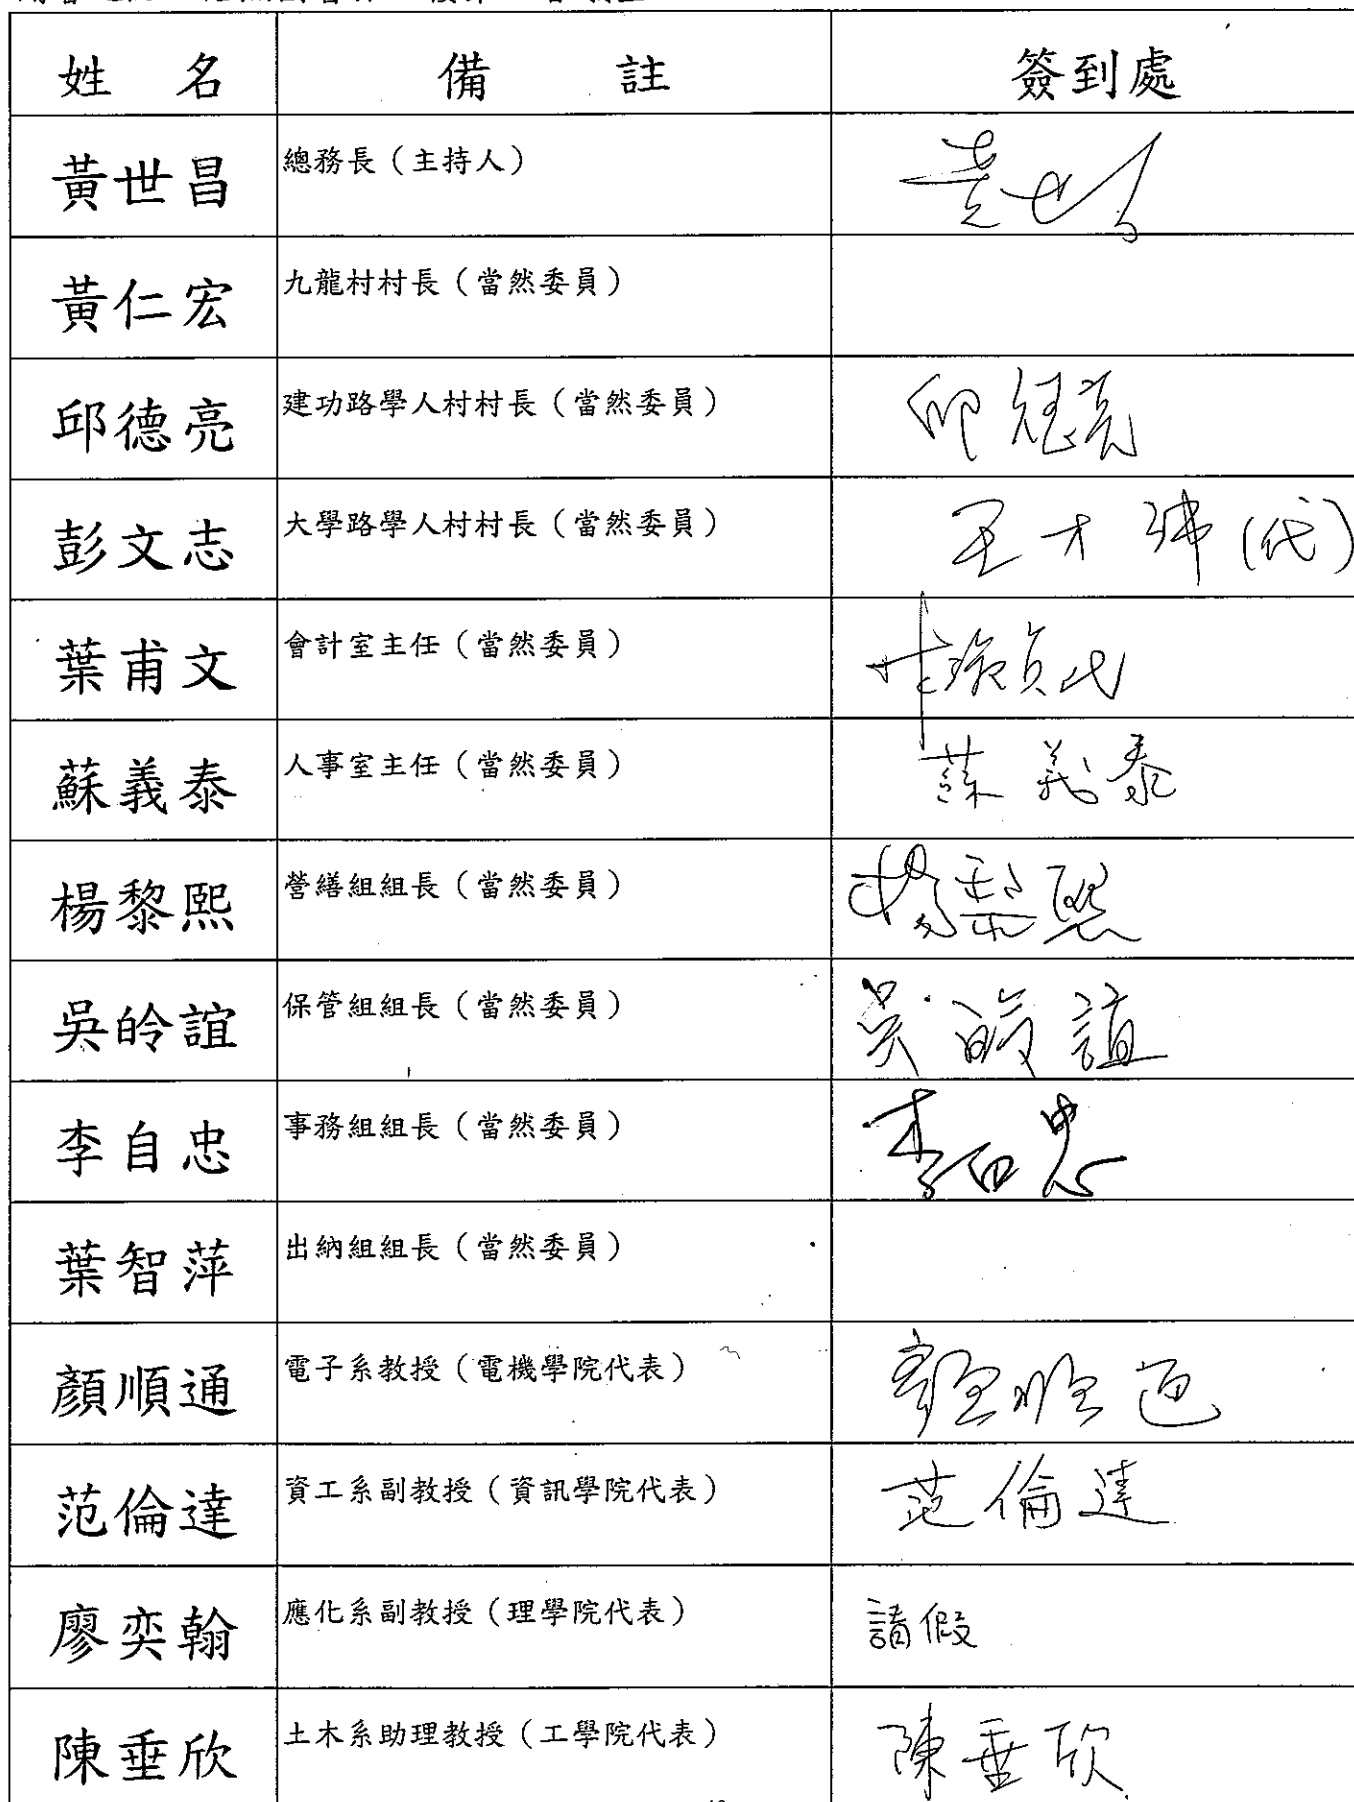 姓 名 備 註 簽到處
黃世昌 總務長（主持人） 黃世昌
黃仁宏 九龍村村長（當然委員）
邱德亮 建功路學人村村長（當然委員） 邱德亮
彭文志 大學路學人村村長（當然委員） (代)
葉甫文 會計室主任（當然委員） 代
蘇義泰 人事室主任（當然委員） 蘇義泰
楊黎熙 營繕組組長（當然委員） 楊黎熙
吳昤誼 保管組組長（當然委員） 吳昤誼
李自忠 事務組組長（當然委員） 李自忠
葉智萍 出納組組長（當然委員）
顏順通 電子系教授（電機學院代表） 顏順通
范倫達 資工系副教授（資訊學院代表） 范倫達
廖奕翰 應化系副教授（理學院代表） 請假
陳垂欣 土木系助理教授（工學院代表） 陳垂欣